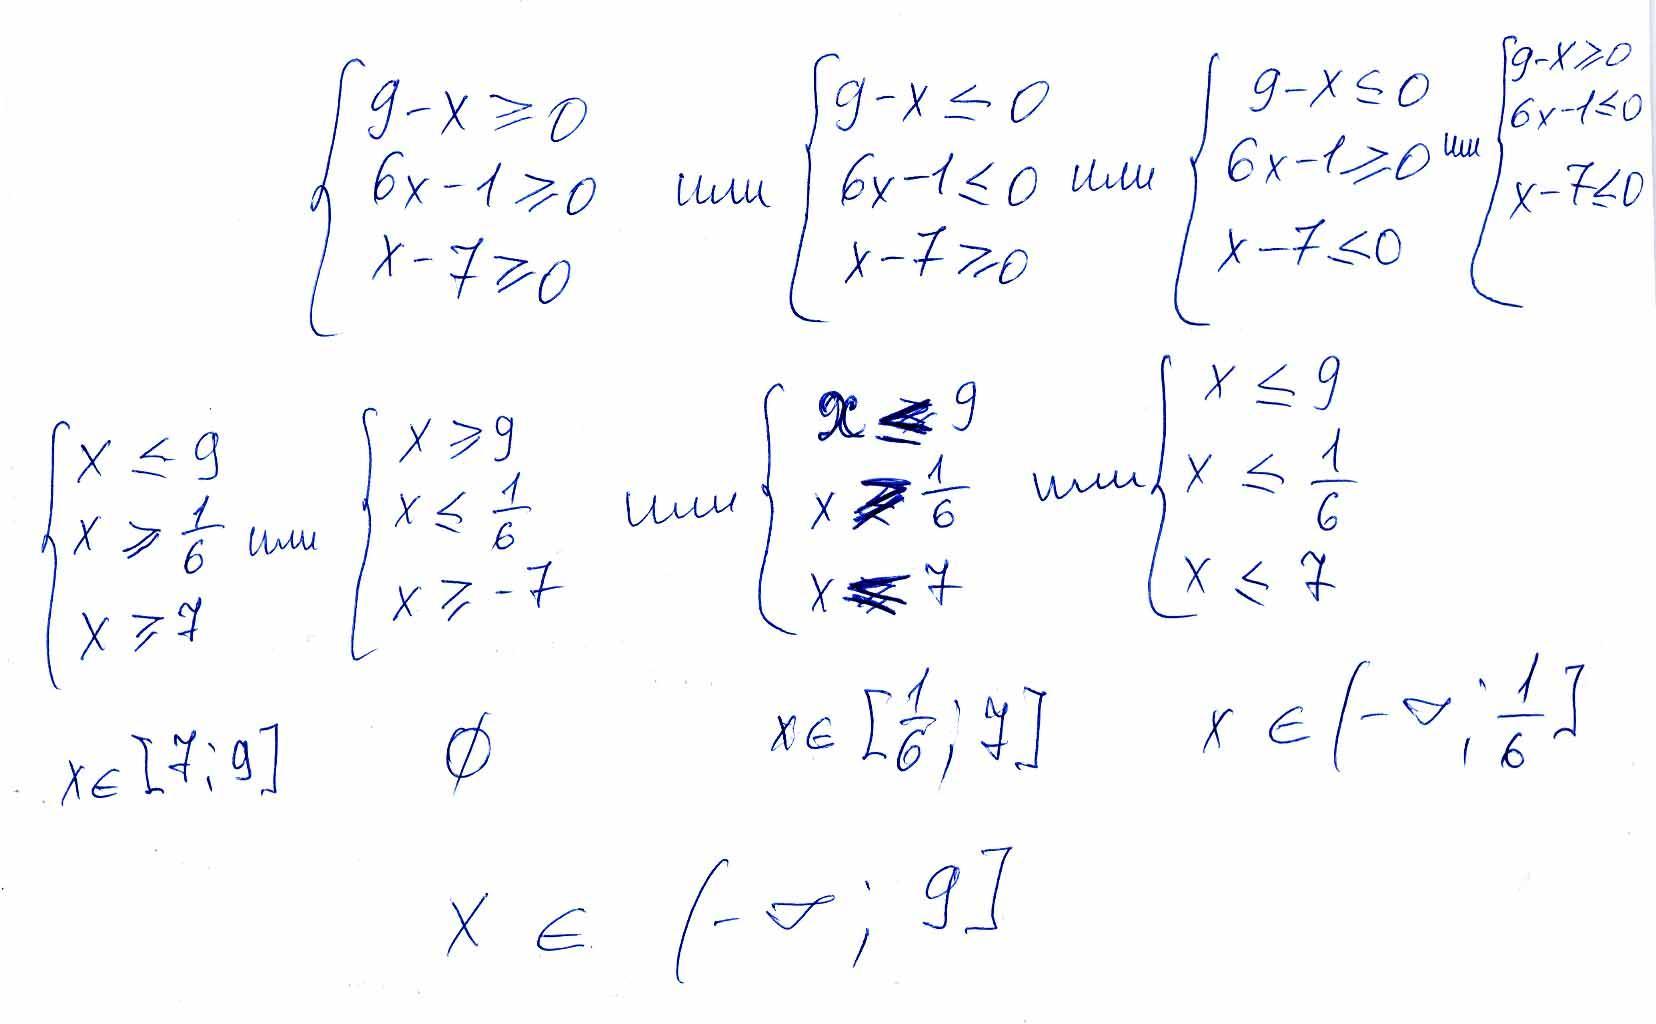 { 9-x ≥ 0
6x-1 ≥ 0
x-7 ≥ 0
или
{ 9-x ≤ 0
6x-1 ≤ 0
x-7 ≥ 0
или
{ 9-x ≤ 0
6x-1 ≥ 0
x-7 ≤ 0
или
{ 9-x ≥ 0
6x-1 ≤ 0
x-7 ≤ 0
{ x ≤ 9
x ≥ 1/6
x ≥ 7
или
{ x ≥ 9
x ≤ 1/6
x ≥ -7
или
{ x ≤ 9
x ≥ 1/6
x ≤ 7
или
{ x ≤ 9
x ≤ 1/6
x ≤ 7
x ∈ [7; 9]
∅
x ∈ [1/6; 7]
x ∈ (-∞; 1/6]
x ∈ (-∞; 9]